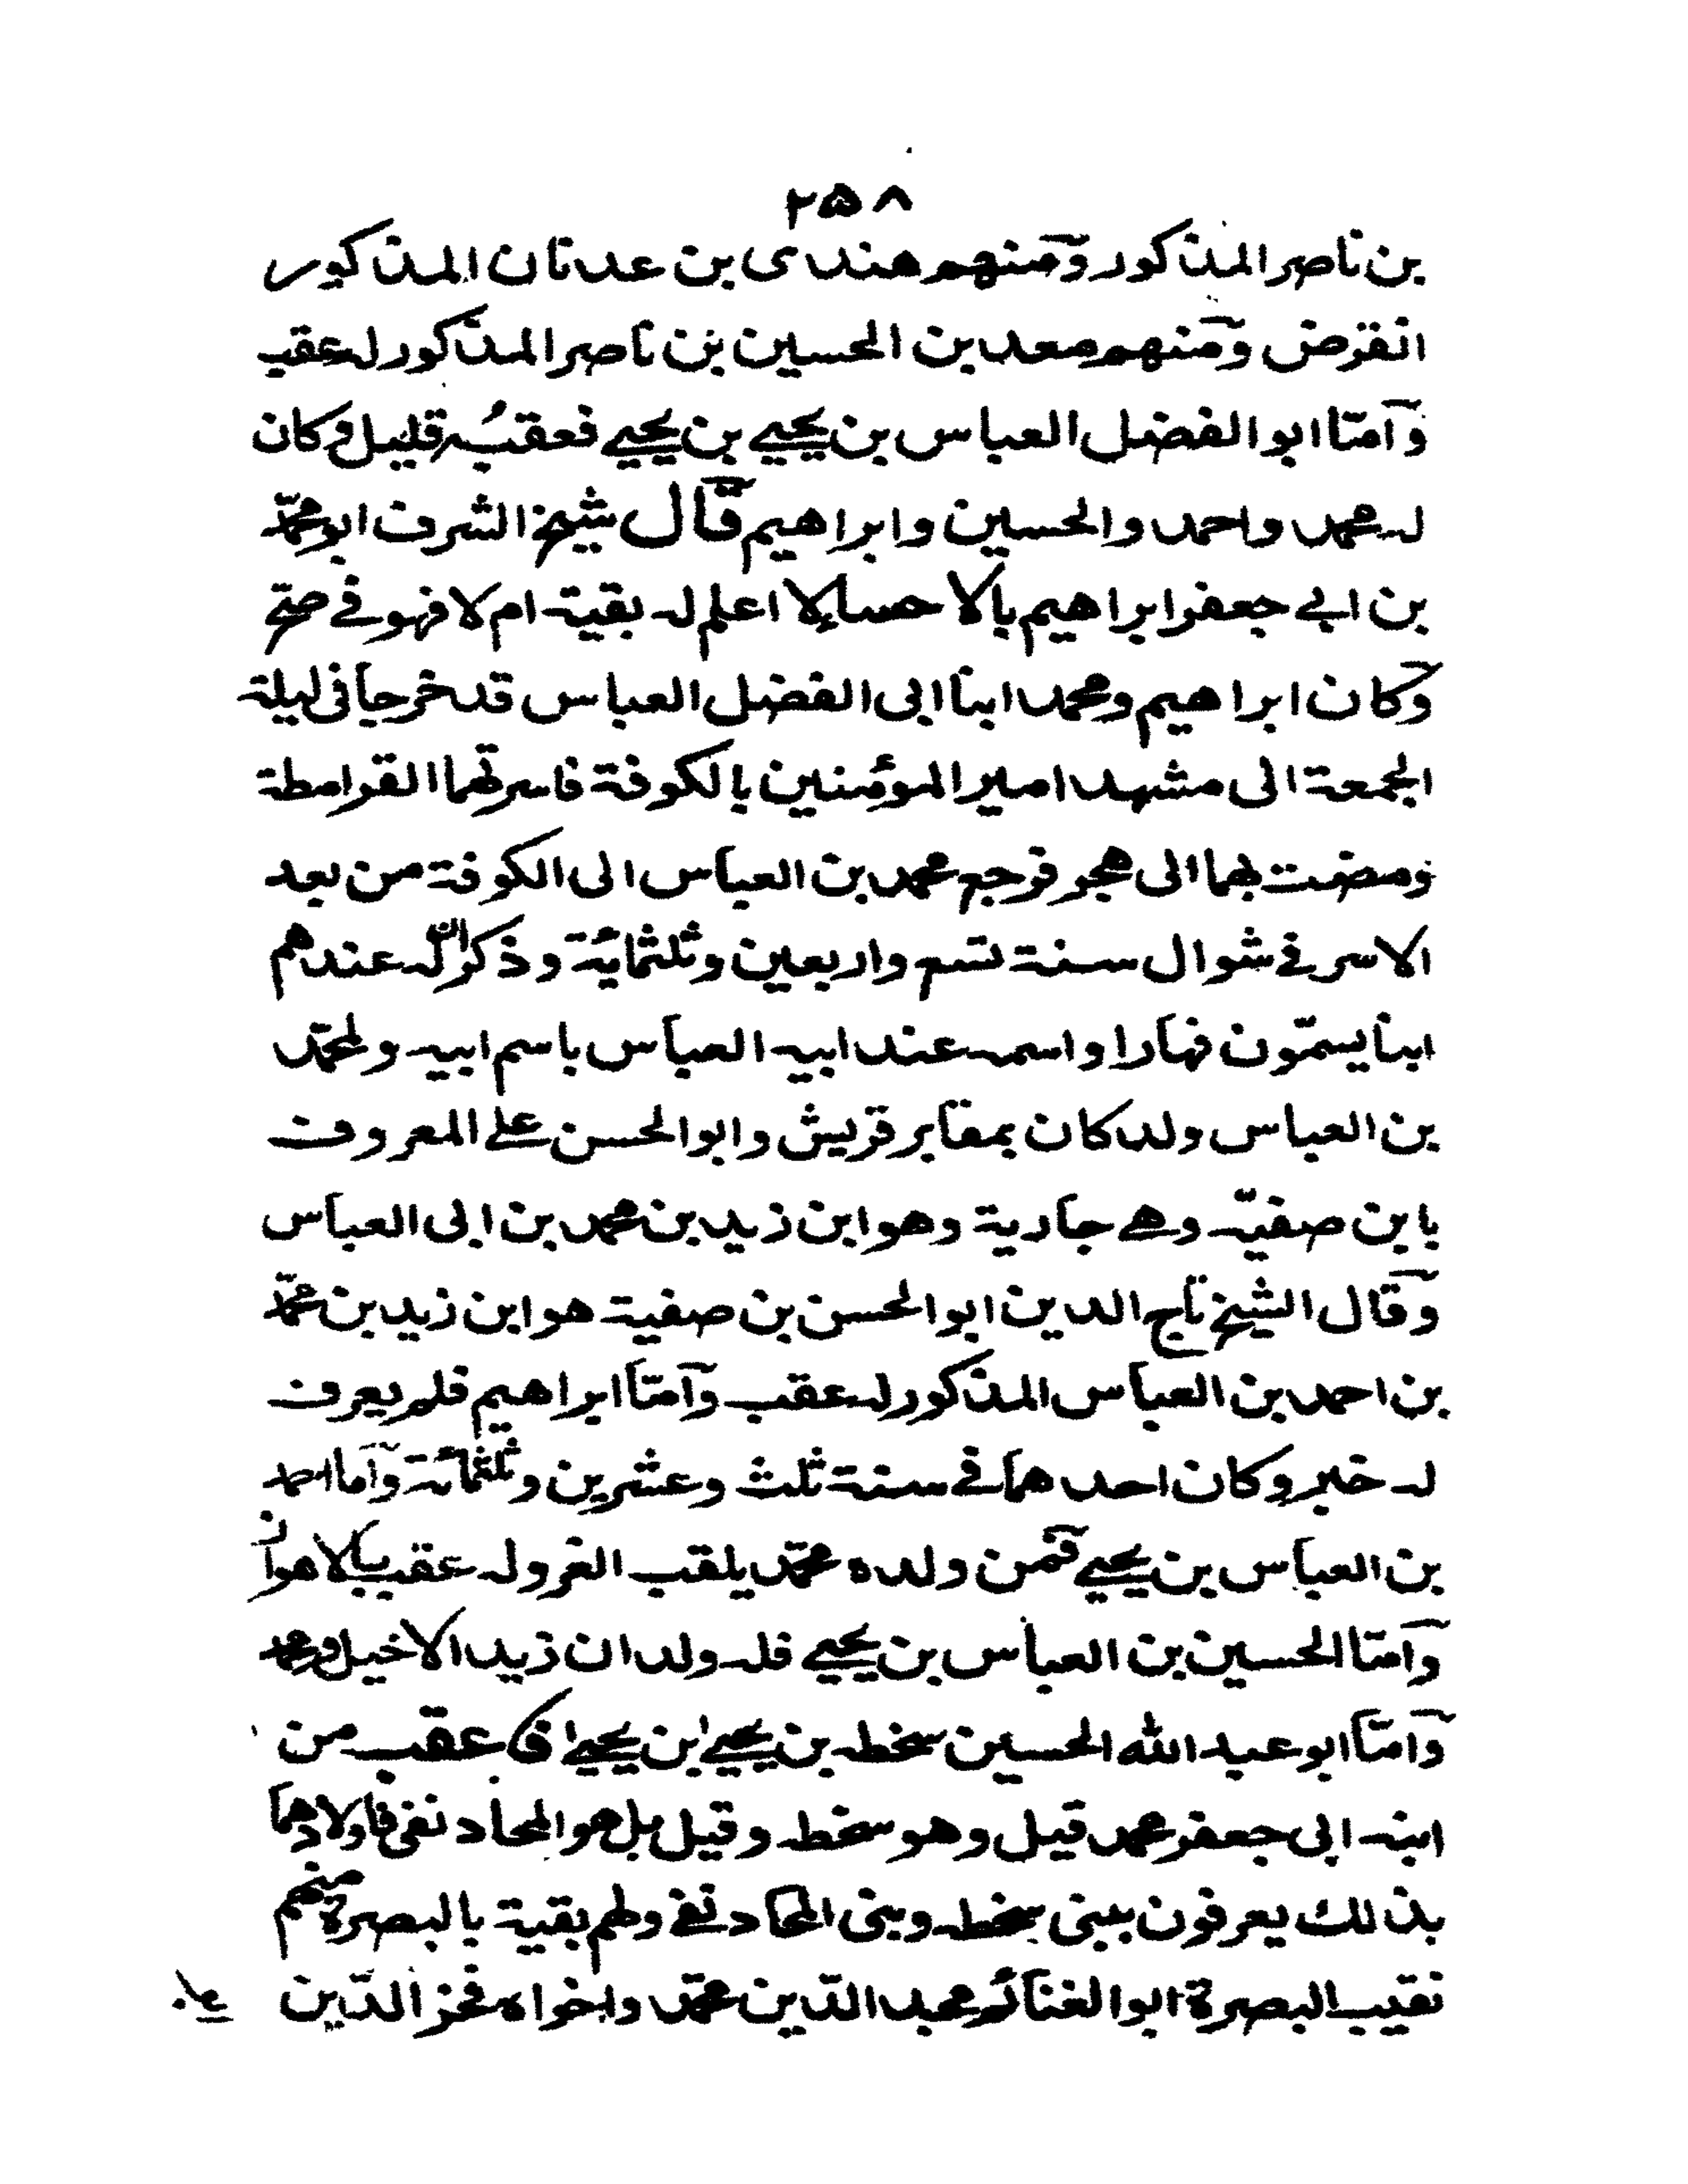 ۲۵۸
بن ناصر المذكور ومنهم هندى بن عدنان المذكور
انقرض ومنهم معد بن الحسين بن ناصر المذكور له عقب
وآمّا ابو الفضل العباس بن يحيي بن يحيي فعقبُه قليل وكان
له محمد واحمد والحسين وابراهيم قال شيخ الشرف ابو محمّد
بن ابي جعفر ابراهيم بالاحساء لا اعلم له بقية ام لا فهو في صح
وكان ابراهيم ومحمد ابنا ابى الفضل العباس قد خرجا فى ليلة
الجمعة الى مشهد امير المؤمنين بالكوفة فاسرتهما القرامطة
ومضت بهما الى هجر فرجع محمد بن العباس الى الكوفة من بعد
الاسر في شوال سنة تسع واربعين وثلثمائة وذكر ان له عندهم
ابنا يسمّون نهارا واسمه عند ابيه العباس باسم ابيه ولمحمّد
بن العباس ولد كان بمقابر قريش وابو الحسن علي المعروف
بابن صفيّه وهي جارية وهو ابن زيد بن محمد بن ابى العباس
وقال الشيخ تاج الدين ابو الحسن بن صفية هو ابن زيد بن محمّد
بن احمد بن العباس المذكور له عقب وآمّا ابراهيم فلم يعرف
له خبر وكان احدهما في سنة ثلث وعشرين وثلثمائة وآما احمد
بن العباس بن يحيي فمن ولده محمّد يلقب الغر وله عقب بالاهواز
وآمّا الحسين بن العباس بن يحيي فله ولدان زيد الاخيل ومحمد
وآمّا ابو عبد الله الحسين سخطه بن يحيي بن يحيي عقب من
ابنه ابى جعفر محمد قيل وهو سخطه وقيل بل هو المحاد نفى فاولادهما
بذلك يعرفون ببنى سخطه وبنى المحاد نفي ولهم بقية بالبصرة منهم
نقيب البصرة ابو الغنائم مجد الدّين محمّد واخواه فخر الدّين